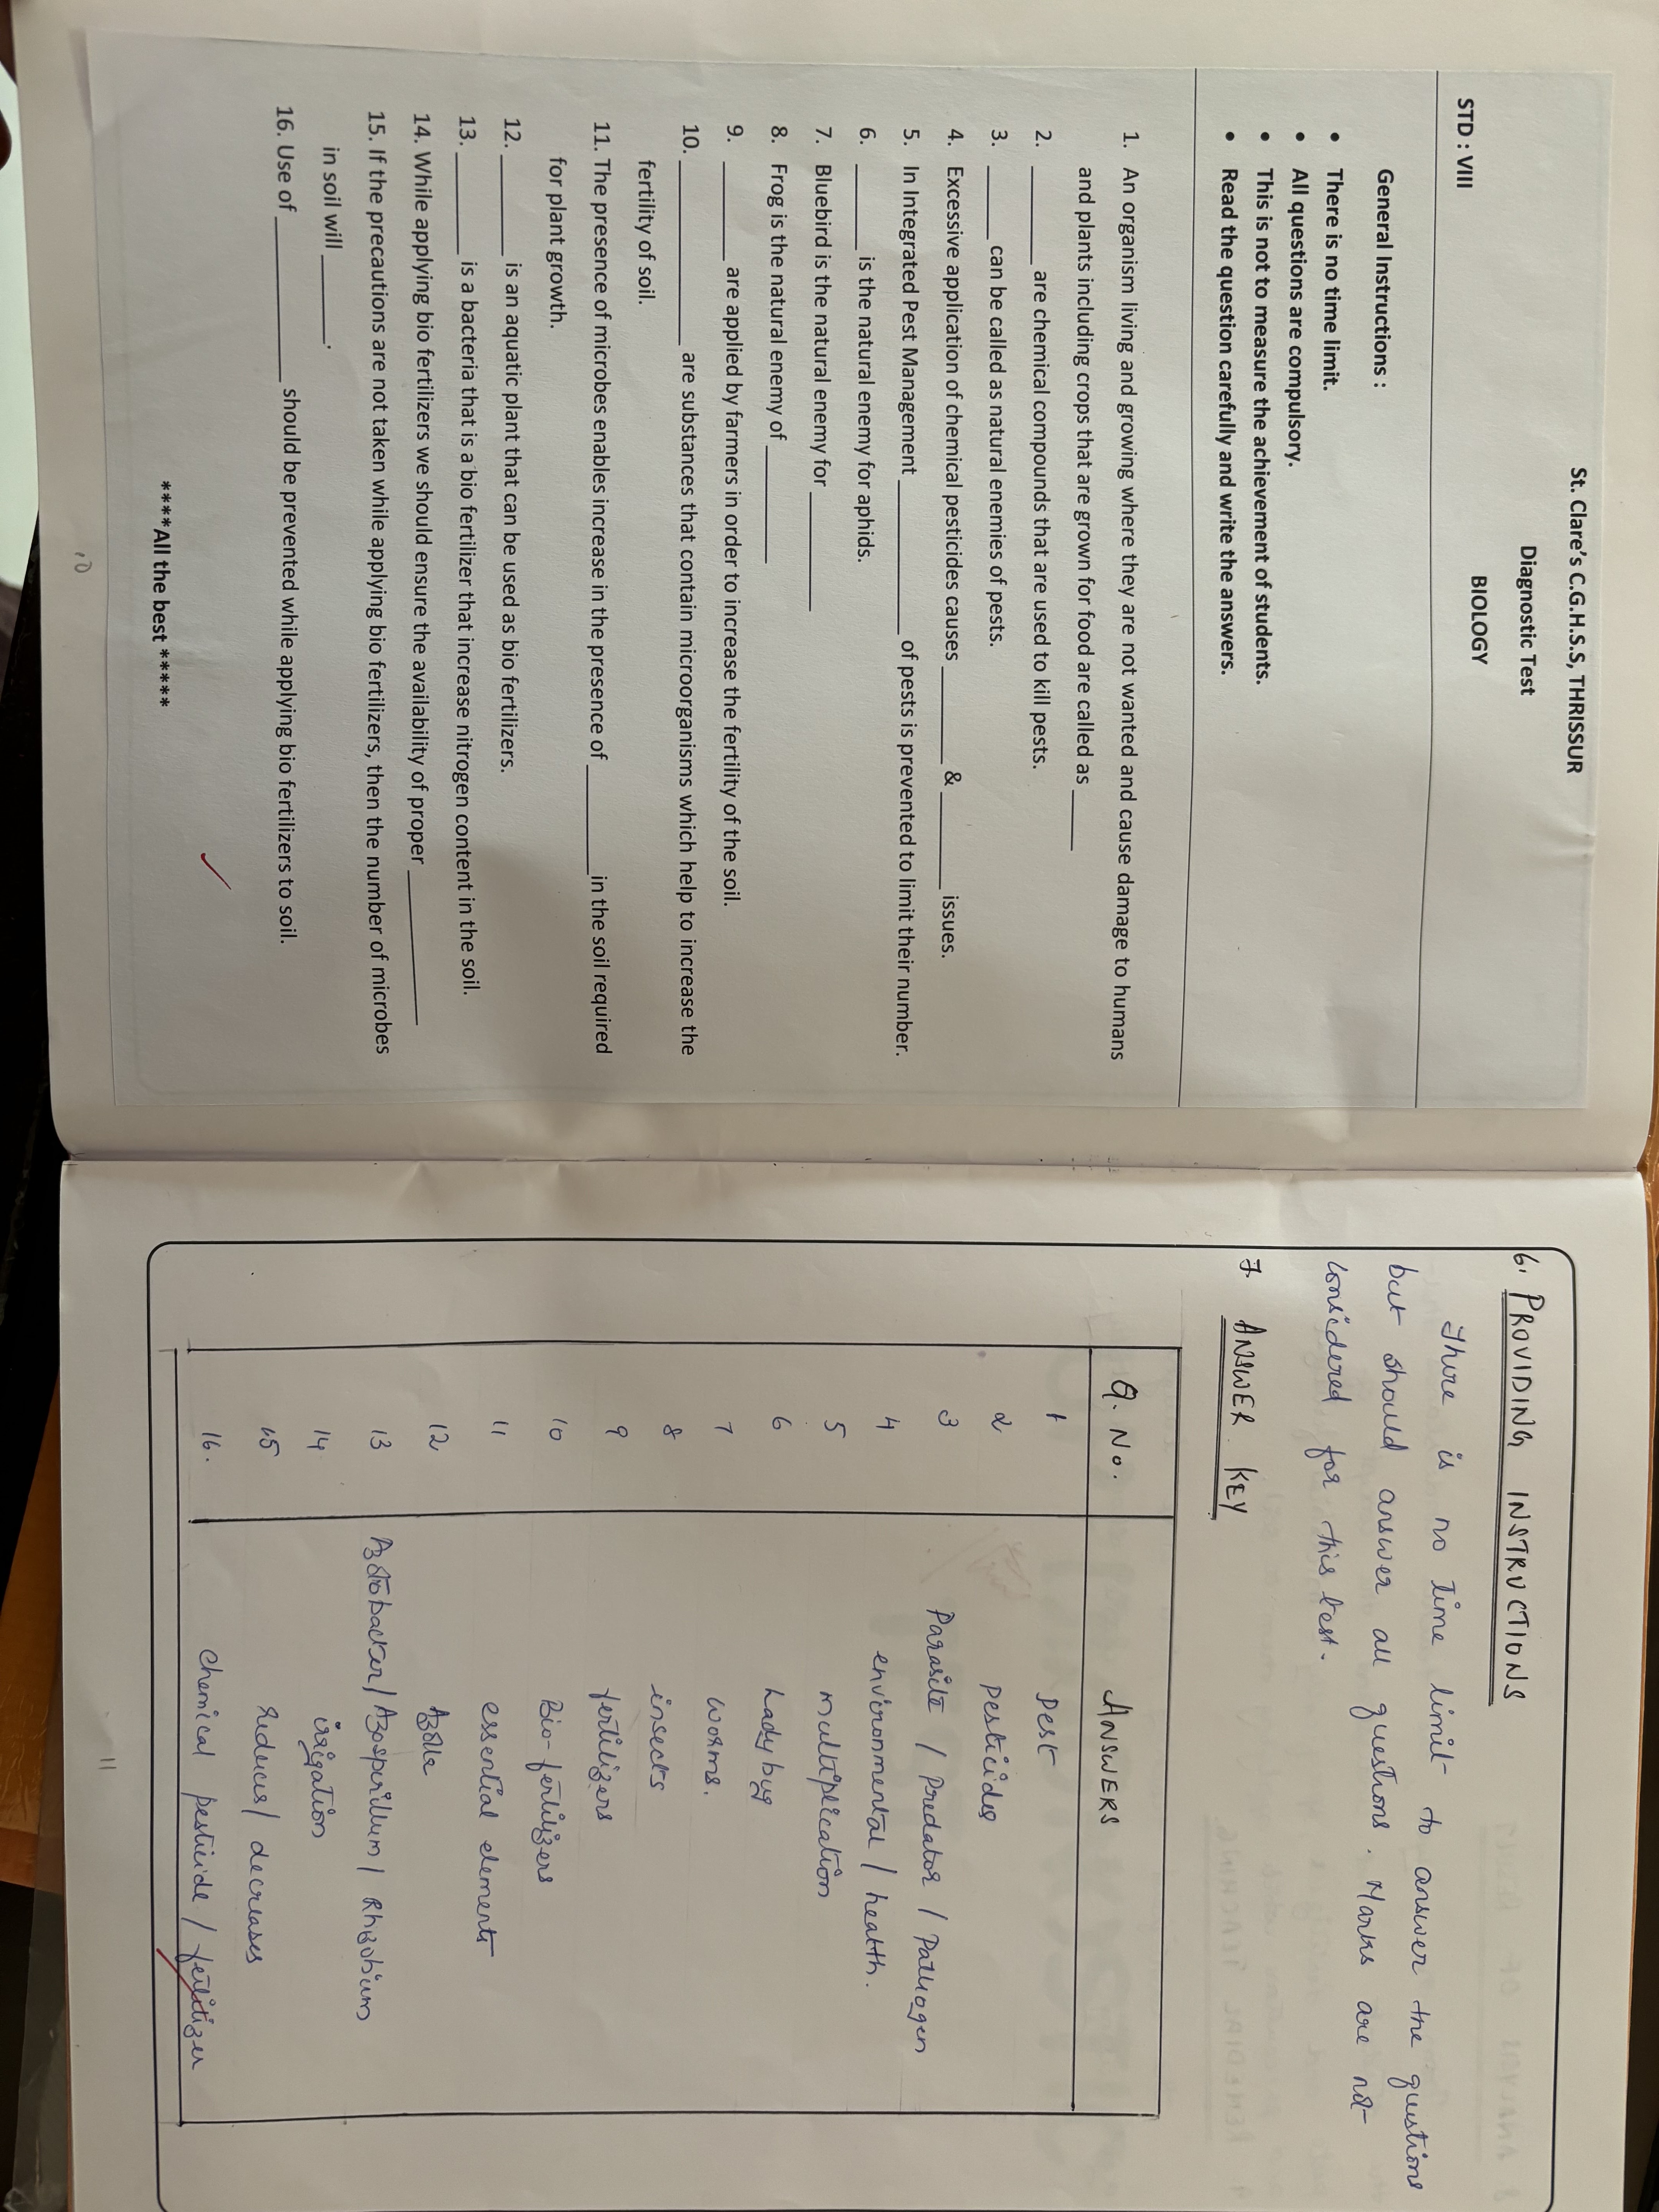 St. Clare's C.G.H.S.S, THRISSUR
Diagnostic Test
BIOLOGY
STD : VIII
General Instructions :
• There is no time limit.
• All questions are compulsory.
• This is not to measure the achievement of students.
• Read the question carefully and write the answers.
1. An organism living and growing where they are not wanted and cause damage to humans
and plants including crops that are grown for food are called as ______
2. ________ are chemical compounds that are used to kill pests.
3. ________ can be called as natural enemies of pests.
4. Excessive application of chemical pesticides causes __________ & __________ issues.
5. In Integrated Pest Management ______________ of pests is prevented to limit their number.
6. ________ is the natural enemy for aphids.
7. Bluebird is the natural enemy for ____________
8. Frog is the natural enemy of ____________
9. __________ are applied by farmers in order to increase the fertility of the soil.
10. __________________ are substances that contain microorganisms which help to increase the
fertility of soil.
11. The presence of microbes enables increase in the presence of __________ in the soil required
for plant growth.
12. __________ is an aquatic plant that can be used as bio fertilizers.
13. __________ is a bacteria that is a bio fertilizer that increase nitrogen content in the soil.
14. While applying bio fertilizers we should ensure the availability of proper ______________
15. If the precautions are not taken while applying bio fertilizers, then the number of microbes
in soil will ________.
16. Use of ________________ should be prevented while applying bio fertilizers to soil.
****All the best *****
10
6. PROVIDING INSTRUCTIONS
There is no time limit to answer the questions
but should answer all questions. Marks are not
considered for this test.
7. ANSWER KEY
Q. No. ANSWERS
1 Pest
2 Pesticides
3 Parasite / Predator / Pathogen
4 environmental / health.
5 multiplication
6 Ladybug
7 worms.
8 insects
9 fertilizers
10 Bio-fertilizers
11 essential elements
12 Azolla
13 Azotobacter / Azosperillum / Rhizobium
14 irrigation
15 reduces / decreases
16. chemical pesticide / fertilizer
11